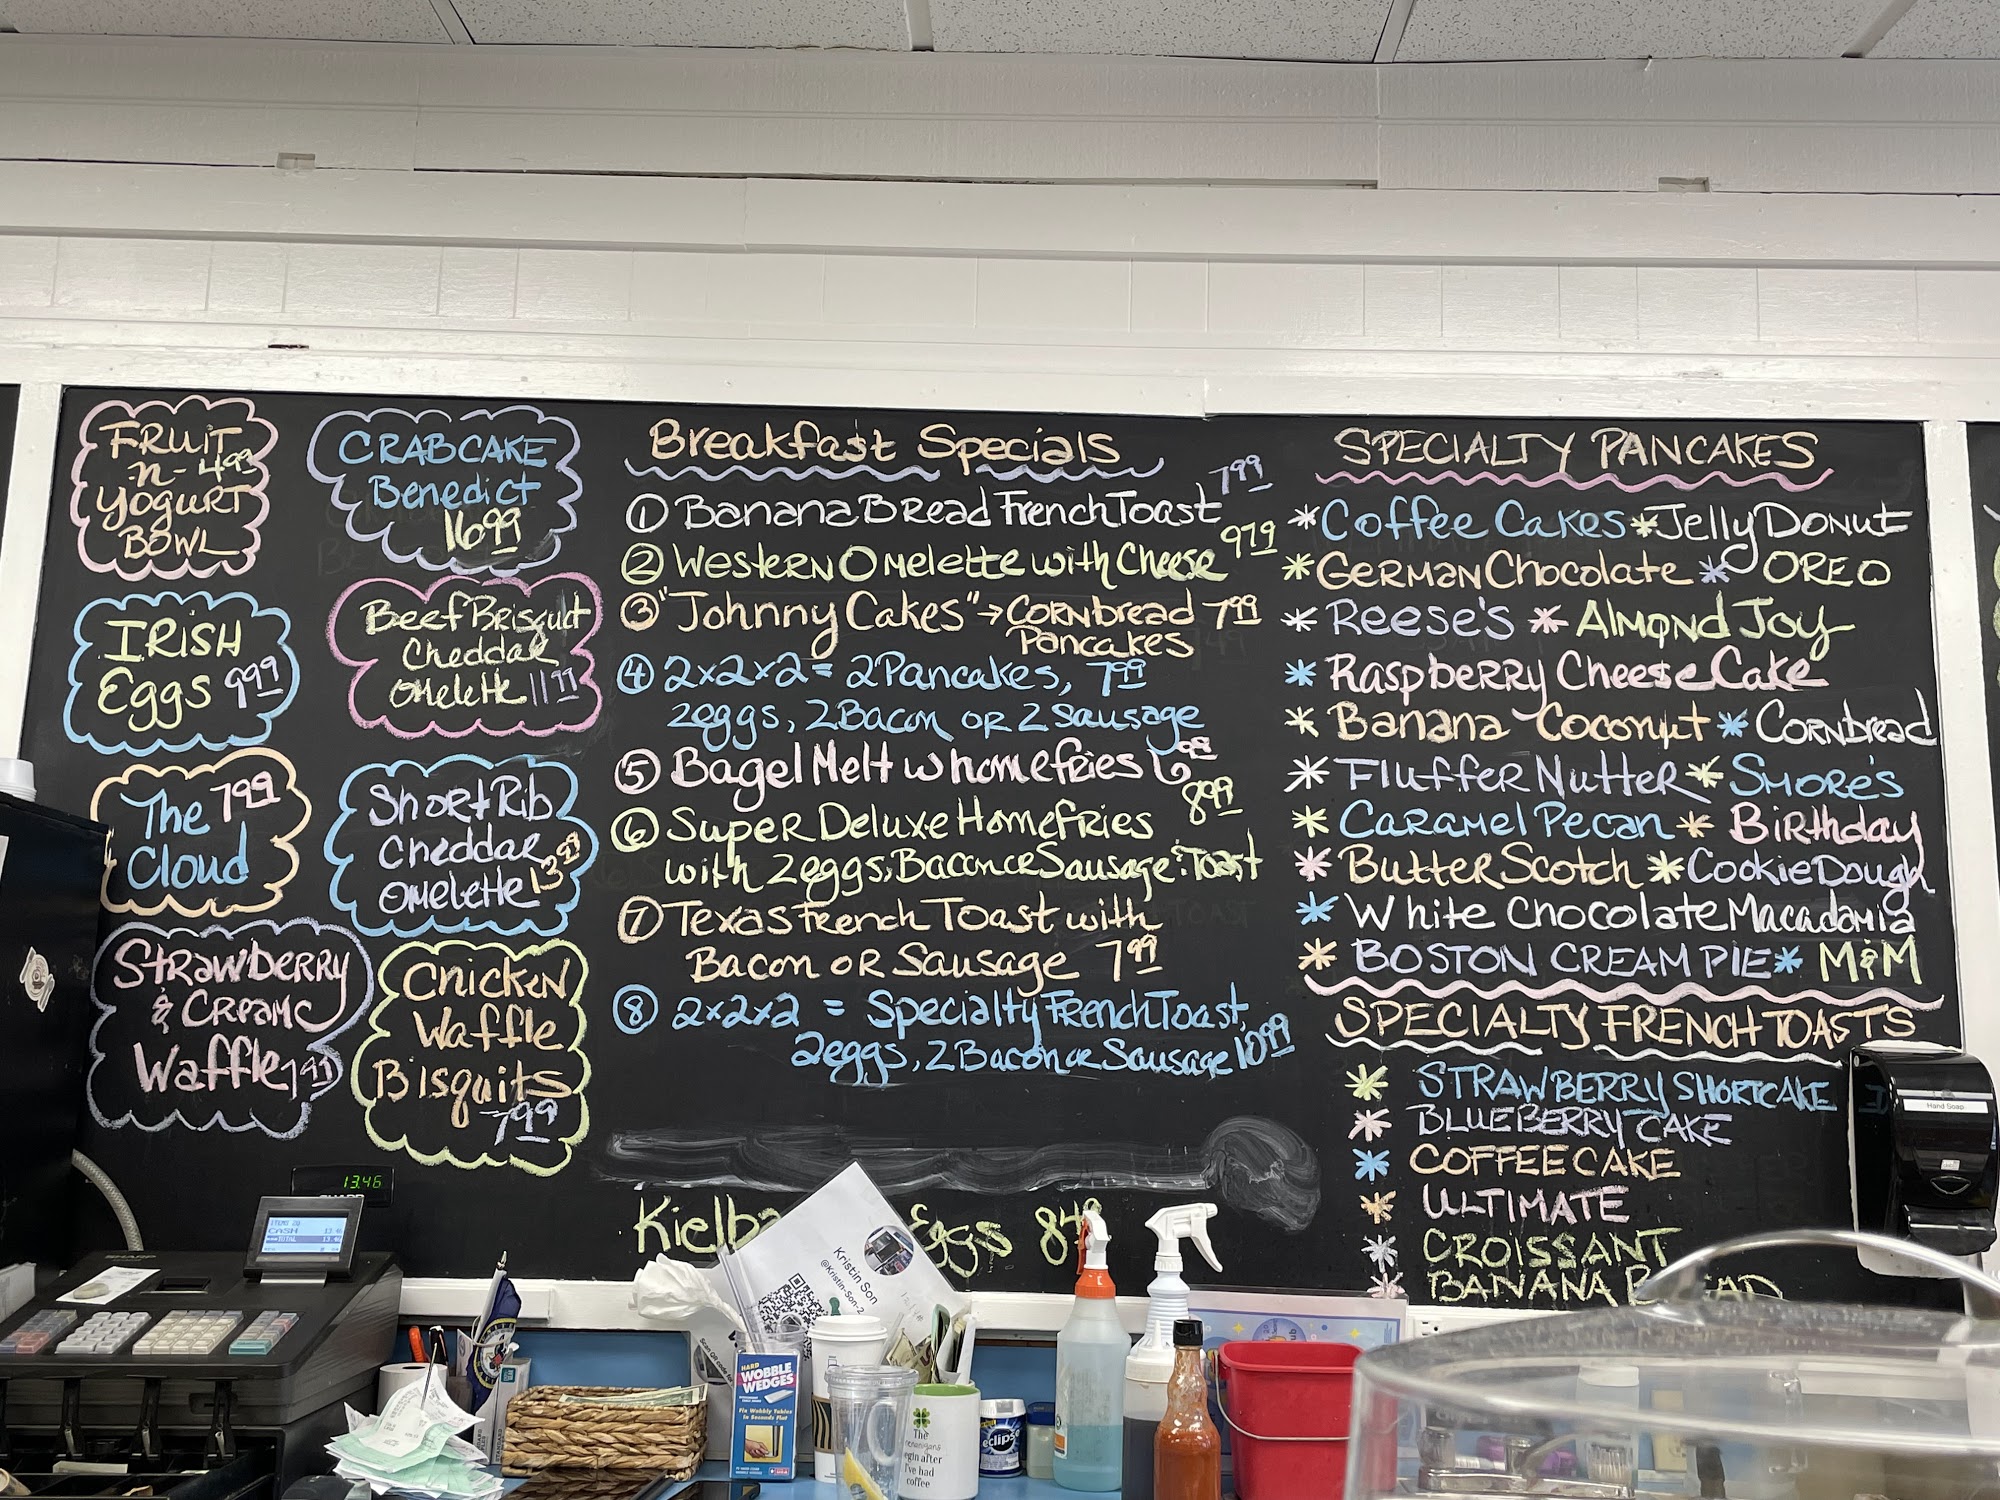 FRUIT
-n- 4.99
YOGURT
BOWL
CRABCAKE
Benedict
16.99
IRISH
Eggs 9.99
Beef Brisquit
Cheddar
Omelette 11.99
The 7.99
Cloud
Short Rib
Cheddar
Omelette 13.99
Strawberry
& Creame
Waffle 7.99
Chicken
Waffle
Bisquits
7.99
Breakfast Specials
① Banana Bread French Toast 7.99
② Western Omelette with Cheese 9.79
③ "Johnny Cakes" → Cornbread 7.99
Pancakes
④ 2x2x2 = 2 Pancakes, 7.99
2 eggs, 2 Bacon or 2 Sausage
⑤ Bagel Melt w homefries 6.98
⑥ Super Deluxe Homefries 8.99
with 2 eggs, Bacon or Sausage & Toast
⑦ Texas French Toast with
Bacon or Sausage 7.99
⑧ 2x2x2 = Specialty French Toast,
2 eggs, 2 Bacon or Sausage 10.99
Eggs
SPECIALTY PANCAKES
* Coffee Cakes * Jelly Donut
* German Chocolate * OREO
* Reese's * Almond Joy
* Raspberry Cheese Cake
* Banana Coconut * Cornbread
* Fluffer Nutter * Smore's
* Caramel Pecan * Birthday
* Butter Scotch * Cookie Dough
* White Chocolate Macadamia
* BOSTON CREAM PIE * M&M
SPECIALTY FRENCH TOASTS
* STRAWBERRY SHORTCAKE
* BLUEBERRY CAKE
* COFFEE CAKE
* ULTIMATE
* CROISSANT
* BANANA
Hand Soap
13.46
SHARP
CASH 13.46
TOTAL 13.46
Kristin Son
@Kristin-Son-2
HARD
WOBBLE
WEDGES
Fix Wobbly Tables
In Seconds Flat
eclipse
The
shenanigans
begin after
I've had
coffee